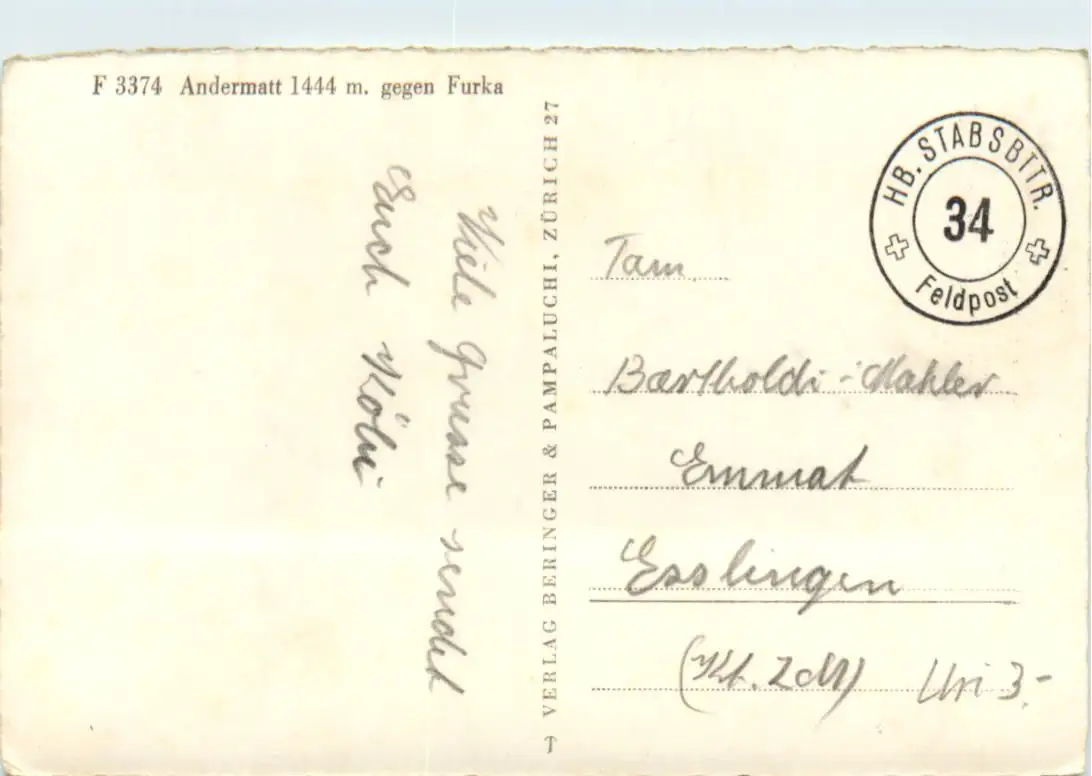 F 3374 Andermatt 1444 m. gegen Furka
Viele Grüsse sendet
Euch Köbi
VERLAG BERINGER & PAMPALUCHI, ZÜRICH 27
HB. STABSBTTR.
34
Feldpost
Fam.
Bartholdi-Mahler
Emmat
Esslingen
(Kt. Zch) Uri 3.-